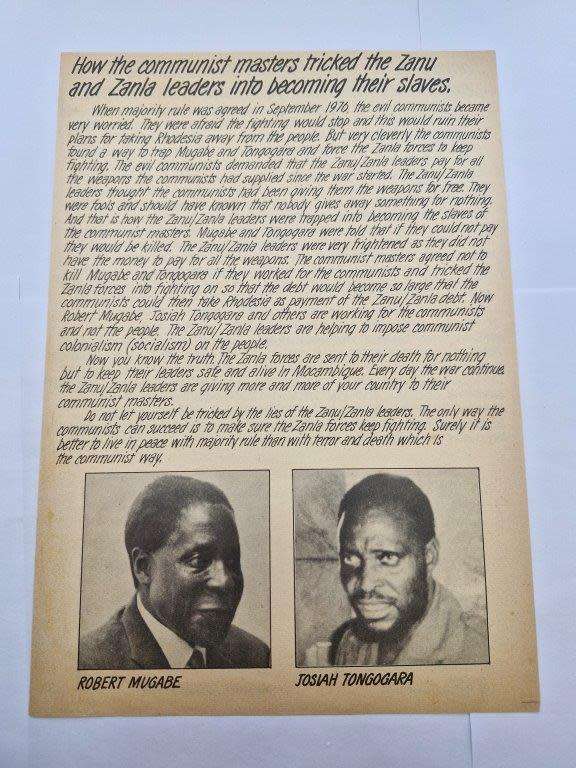 How the communist masters tricked the Zanu
and Zanla leaders into becoming their slaves.
When majority rule was agreed in September 1976, the evil communists became
very worried. They were afraid the fighting would stop and this would ruin their
plans for taking Rhodesia away from the people. But very cleverly the communists
found a way to trap Mugabe and Tongogara and force the Zanla forces to keep
fighting. The evil communists demanded that the Zanu/Zanla leaders pay for all
the weapons the communists had supplied since the war started. The Zanu/Zanla
leaders thought the communists had been giving them the weapons for free. They
were fools and should have known that nobody gives away something for nothing.
And that is how the Zanu/Zanla leaders were trapped into becoming the slaves of
the communist masters. Mugabe and Tongogara were told that if they could not pay
they would be killed. The Zanu/Zanla leaders were very frightened as they did not
have the money to pay for all the weapons. The communist masters agreed not to
kill Mugabe and Tongogara if they worked for the communists and tricked the
Zanla forces into fighting on so that the debt would become so large that the
communists could then take Rhodesia as payment of the Zanu/Zanla debt. Now
Robert Mugabe, Josiah Tongogara and others are working for the communists
and not the people. The Zanu/Zanla leaders are helping to impose communist
colonialism (socialism) on the people.
Now you know the truth. The Zanla forces are sent to their death for nothing
but to keep their leaders safe and alive in Mocambique. Every day the war continue,
the Zanu/Zanla leaders are giving more and more of your country to their
communist masters.
Do not let yourself be tricked by the lies of the Zanu/Zanla leaders. The only way the
communists can succeed is to make sure the Zanla forces keep fighting. Surely it is
better to live in peace with majority rule than with terror and death which is
the communist way.
ROBERT MUGABE
JOSIAH TONGOGARA